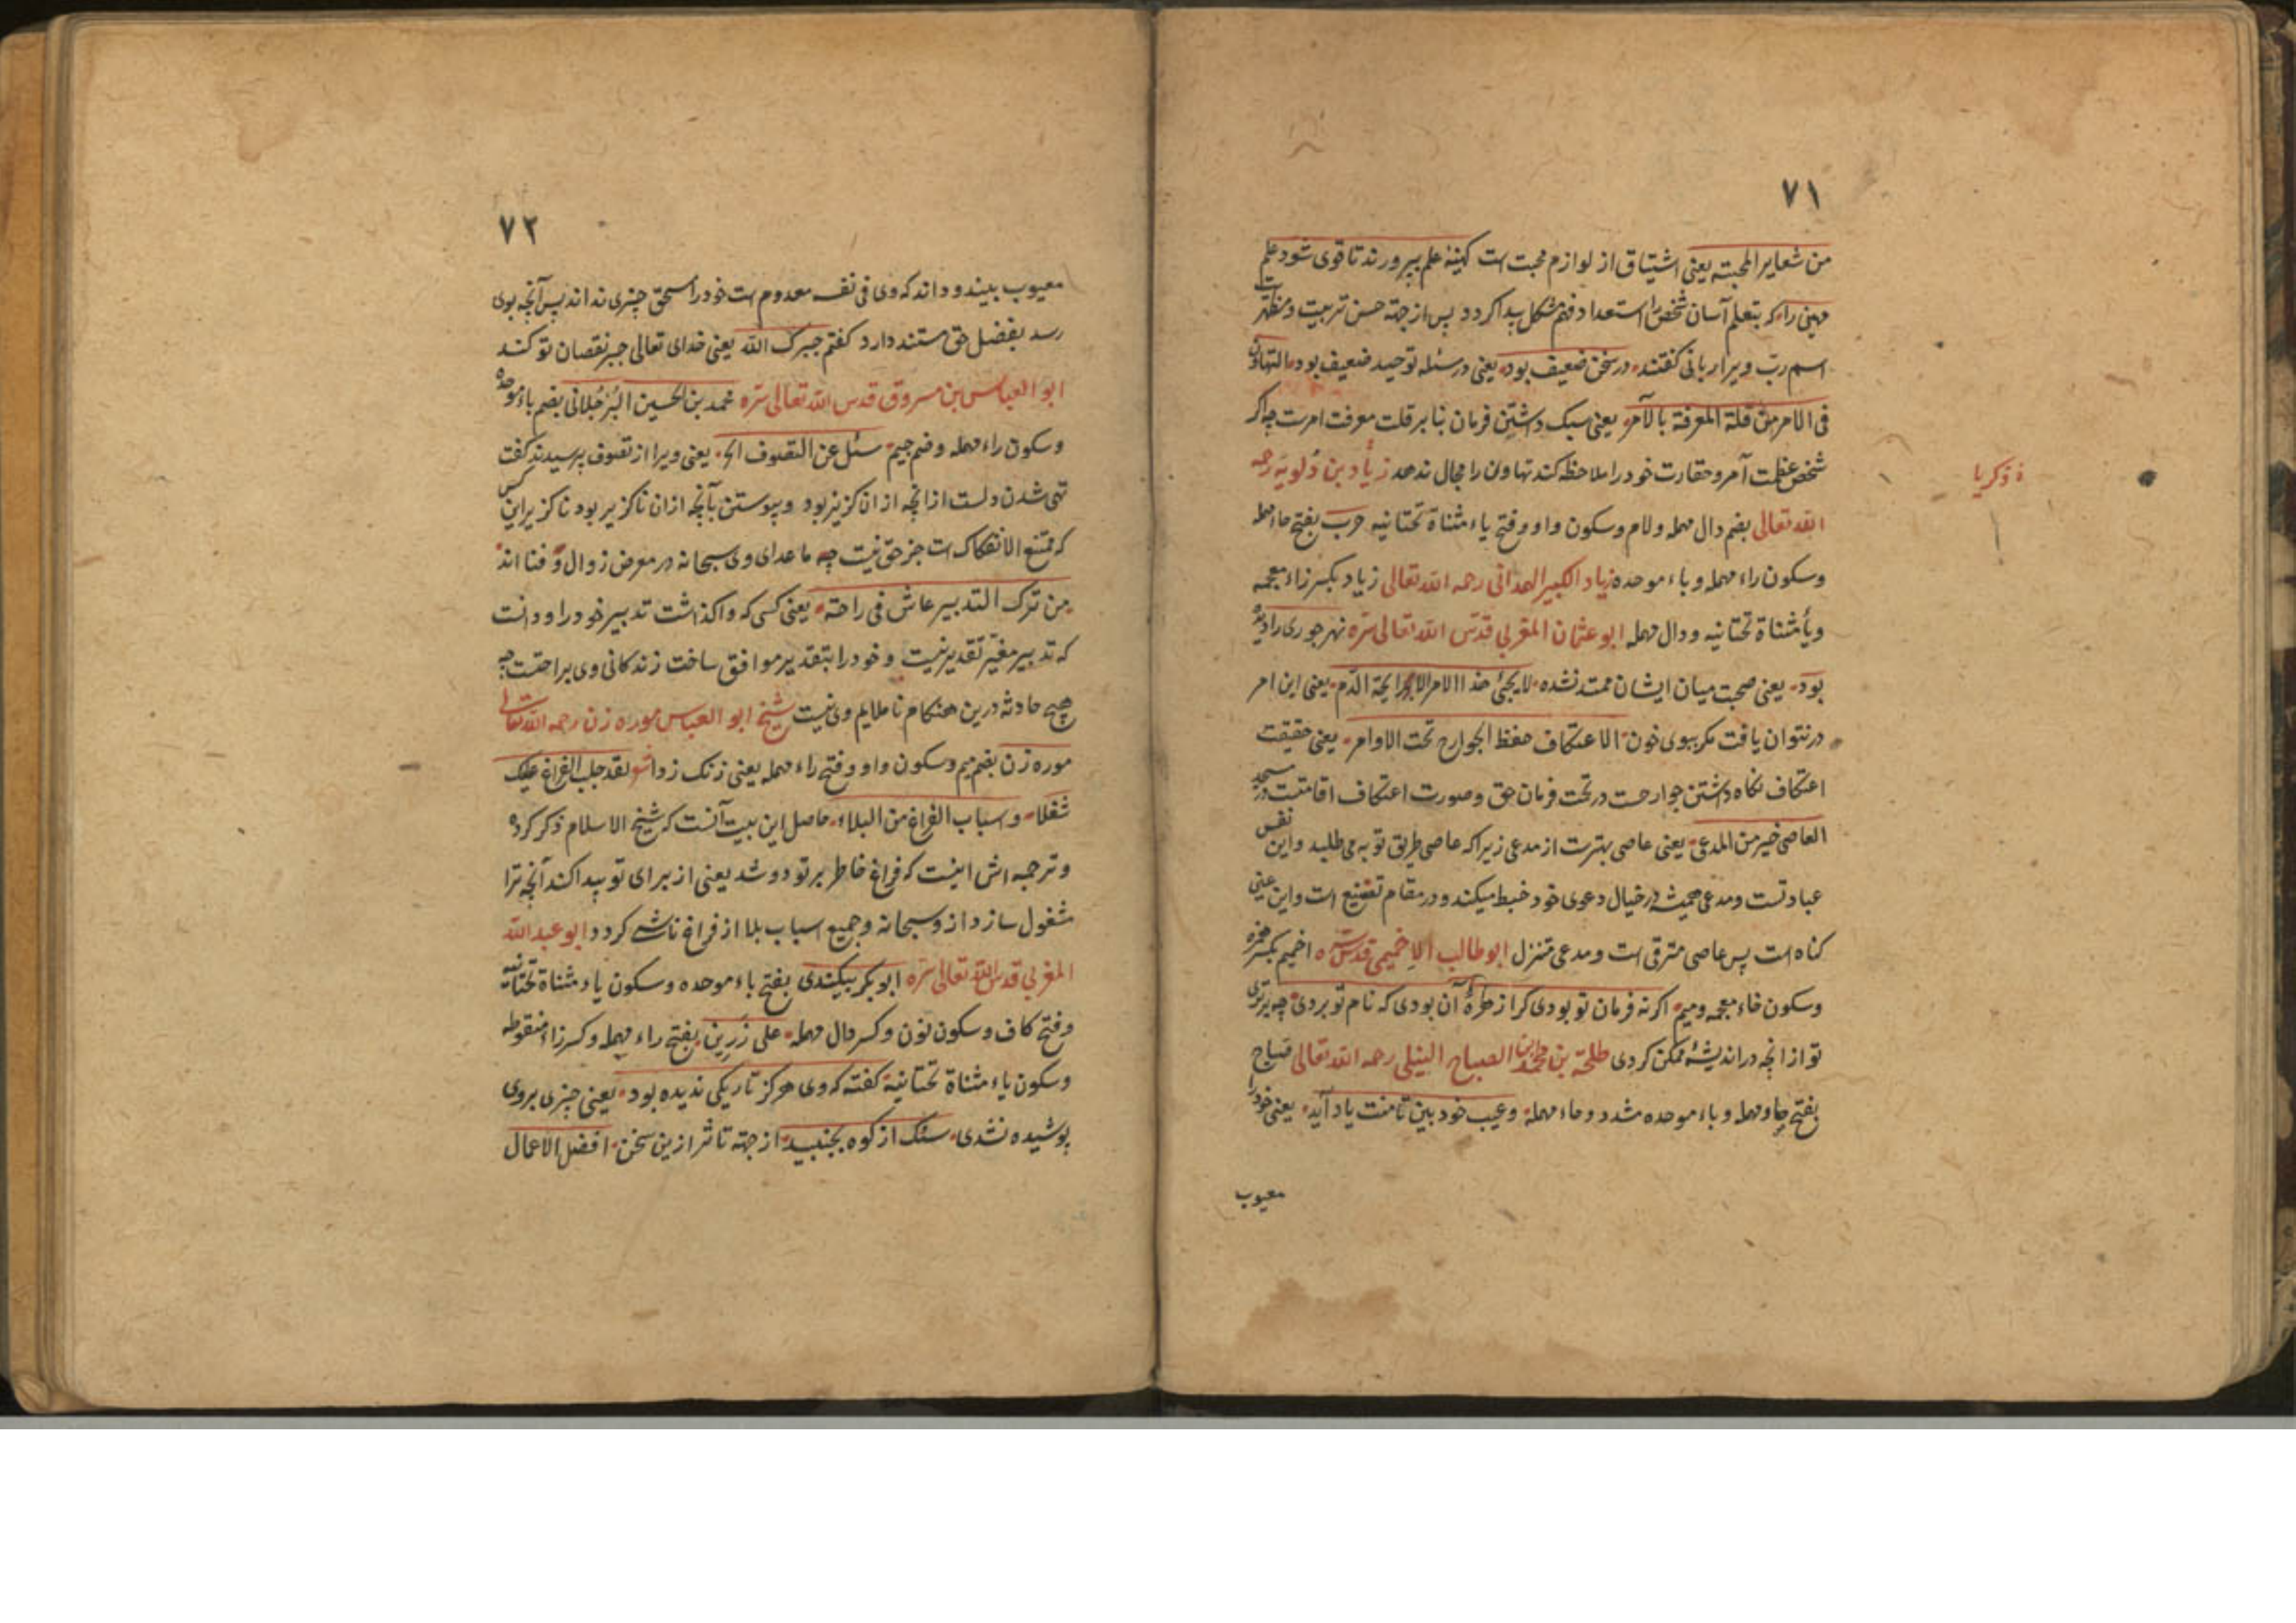 ۷۱
من شعایر المحبته یعنی اشتیاق از لوازم محبت است کهینهٔ علم بپرورند تا قوی شود علم
مهینی را که بتعلم آسان شخص را استعداد فهم مشکل پیدا کردد پس از جهة حسن تربیت و مظهریت
اسم رب ویرا ربانی کفتند در سخن ضعیف بود یعنی در مسئلهٔ توحید ضعیف بود التهاون
فی الامر من قلة المعرفة بالآمر یعنی سبک داشتن فرمان بنابر قلت معرفت امرست چه اکر
شخص عظمت آمر و حقارت خود را ملاحظه کند تهاون را مجال ندهد زیاد بن دلویة رحمه
ذ ذکریا
الله تعالی بضم دال مهمله و لام و سکون واو و فتح یاء مثناة تحتانیه حرب بفتح حاء مهمله
و سکون راء مهمله و باء موحده زیاد الکبیر الهمدانی رحمه الله تعالی زیاد بکسر زاء معجمه
و یا مثناة تحتانیه و دال مهمله ابو عثمان المغربی قدس الله تعالی سره نهرجوری را دیده
بود یعنی صحبت میان ایشان ممتد نشده لا یجئ هذا الامر الا برایحة الدم یعنی این امر
در نتوان یافت مکر ببوی خون الاعتکاف حفظ الجوارح تحت الاوامر یعنی حقیقت
اعتکاف نکاه داشتن جوارحست در تحت فرمان حق و صورت اعتکاف اقامتست در مسجد
العاصی خیر من المدعی یعنی عاصی بهترست از مدعی زیرا که عاصی طریق توبه می طلبد و این نفس
عبادتست و مدعی همیشه در خیال دعوی خود خبط میکند و در مقام تصنع است و این عین
کناه است پس عاصی مترقی است و مدعی متنزل ابو طالب الاخمیمی قدس سره اخمیم بکسر همزه
و سکون خاء معجمه و میم اکر نه فرمان تو بودی کرا زهرهٔ آن بودی که نام تو بردی چه برتری
تو از انچه در اندیشهٔ ممکن کردی طلحة بن محمد بن الصباح النیلی رحمه الله تعالی صباح
بفتح صاد مهمله و باء موحده مشدد و حاء مهمله و عیب خود بین تا منت یاد آید یعنی خود را
معیوب
۷۲
معیوب بیند و داند که وی فی نفسه معدوم است خود را مستحق چیزی نداند پس آنچه بوی
رسد بفضل حق مستند دارد کفتم جبرک الله یعنی خدای تعالی جبر نقصان تو کند
ابو العباس بن مسروق قدس الله تعالی سره محمد بن الحسین البرجلانی بضم باء موحده
و سکون راء مهمله و ضم جیم سئل عن التصوف الخ یعنی ویرا از تصوف پرسیدند کفت
تهی شدن دلست از انچه از ان کزیر بود و پیوستن بآنچه ازان ناکزیر بود ناکزیر این کس
که ممتنع الانفکاک است جز حق نیست چه ما عدای وی سبحانه در معرض زوال و فنا اند
من ترک التدبیر عاش فی راحة یعنی کسی که واکذاشت تدبیر خود را و دانست
که تدبیر مغیر تقدیر نیست و خود را بتقدیر موافق ساخت زندکانی وی براحتست چه
هیچ حادثه درین هنکام نا ملایم وی نیست شیخ ابو العباس موره زن رحمه الله تعالی
موره زن بضم میم و سکون واو و فتح راء مهمله یعنی زنک زدا شو لقد جلب الفراغ علیک
شغلا و اسباب الفراغ من البلاء حاصل این بیت آنست که شیخ الاسلام ذکر کرده
و ترجمه اش اینست که فراغ خاطر بر تو دوشد یعنی از برای تو پیدا کند آنچه ترا
مشغول سازد از و سبحانه و جمیع اسباب بلا از فراغ ناشی کردد ابو عبدالله
المغربی قدس الله تعالی سره ابو بکر بیکندی بفتح باء موحده و سکون یاء مثناة تحتانیه
و فتح کاف و سکون نون و کسر دال مهمله علی زرین بفتح راء مهمله و کسر زاء منقوطه
و سکون یاء مثناة تحتانیة کفته که وی هرکز تاریکی ندیده بود یعنی چیزی بروی
پوشیده نشدی سنک از کوه بجنبید از جهة تاثر ازین سخن افضل الاعمال